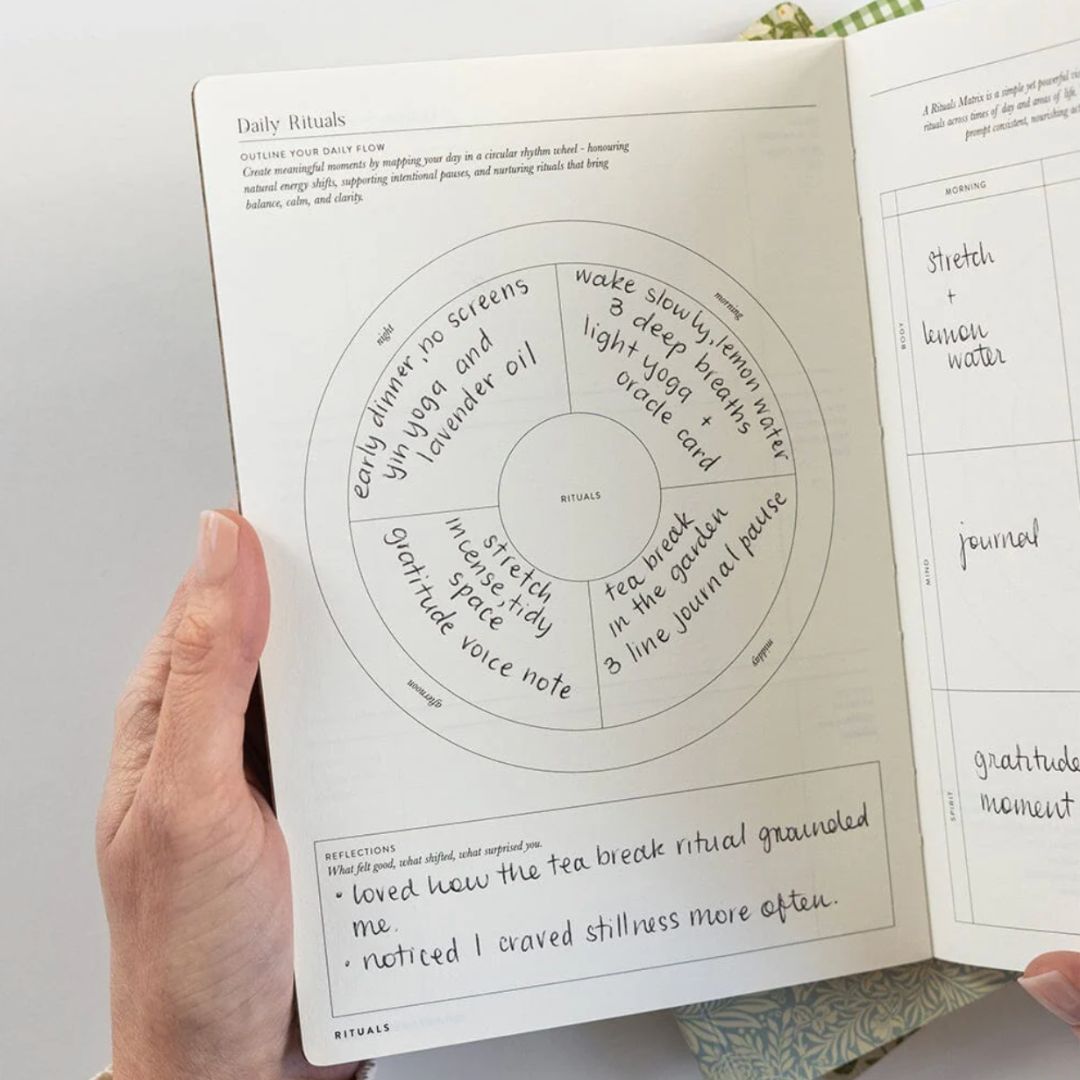 Daily Rituals
OUTLINE YOUR DAILY FLOW
Create meaningful moments by mapping your day in a circular rhythm wheel - honouring
natural energy shifts, supporting intentional pauses, and nurturing rituals that bring
balance, calm, and clarity.
night
early dinner, no screens
yin yoga and
lavender oil
morning
wake slowly, lemon water
3 deep breaths
light yoga +
oracle card
RITUALS
afternoon
stretch
incense, tidy
space
gratitude voice note
midday
tea break
in the garden
3 line journal pause
REFLECTIONS
What felt good, what shifted, what surprised you.
• loved how the tea break ritual grounded
me.
• noticed I craved stillness more often.
RITUALS
A Rituals Matrix is a simple yet powerful
rituals across times of day and areas of life,
prompt consistent, nourishing
MORNING
BODY
stretch
+
lemon
water
MIND
journal
SPIRIT
gratitude
moment